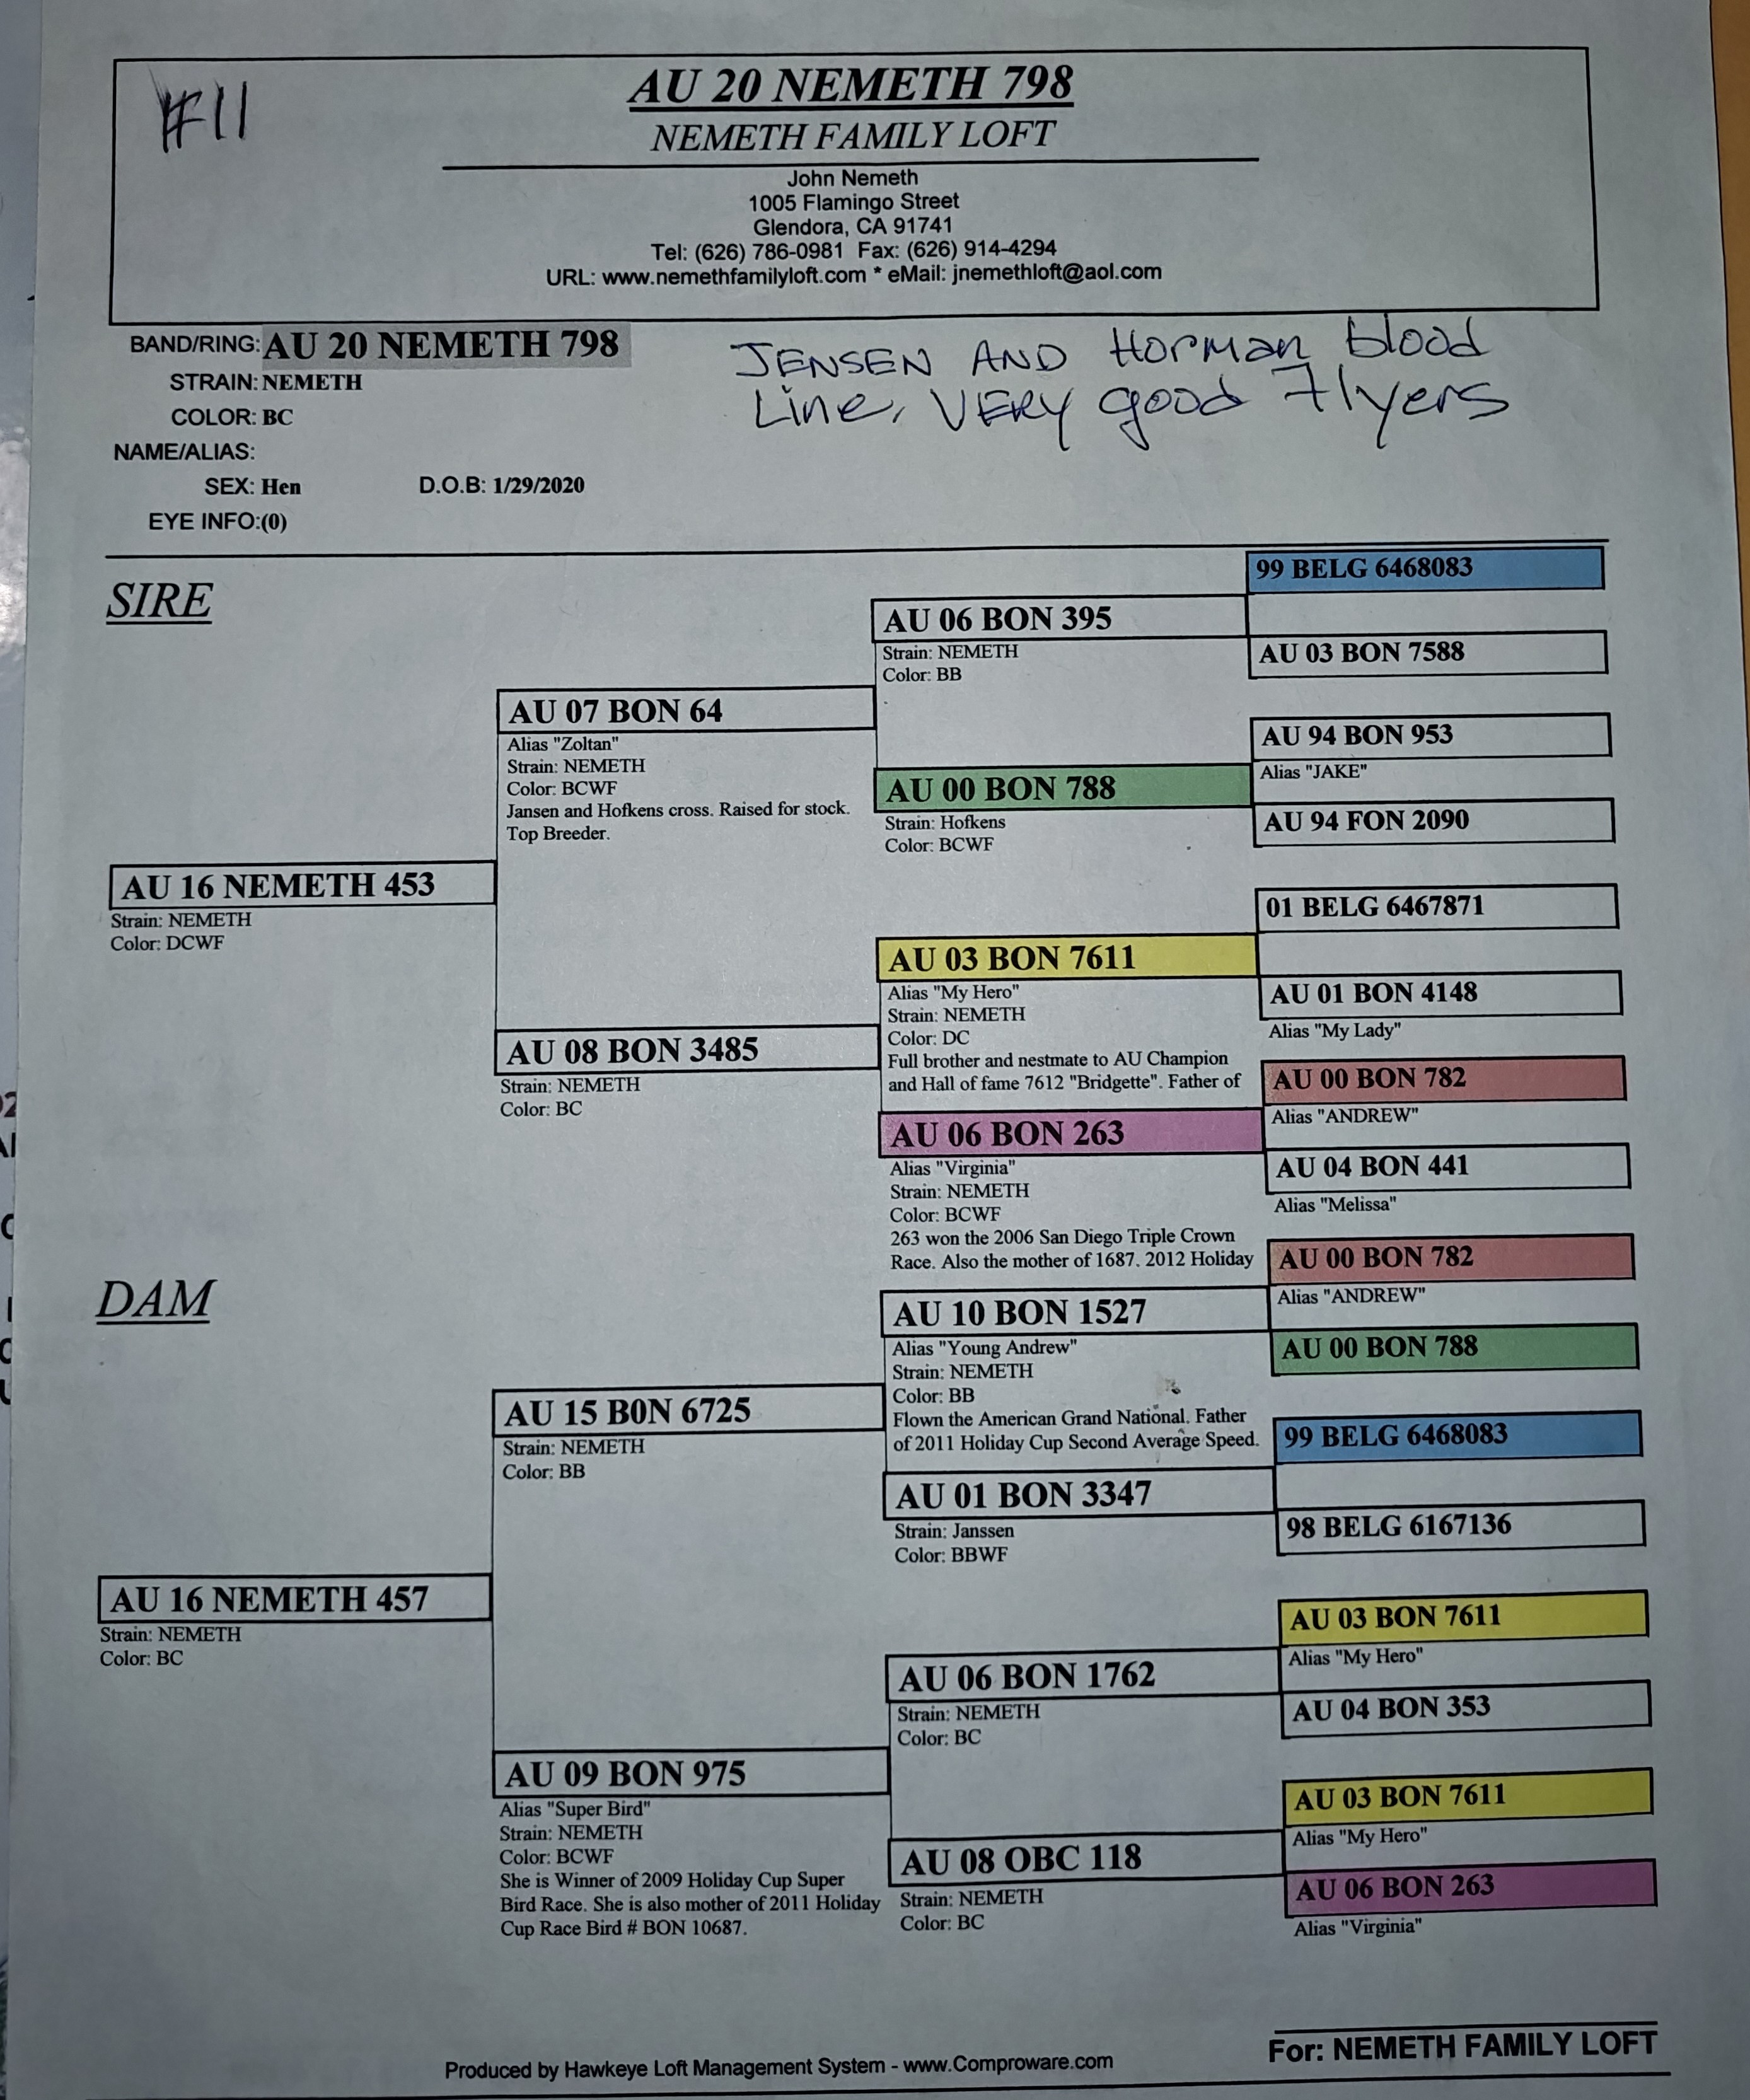 #11
AU 20 NEMETH 798
NEMETH FAMILY LOFT
John Nemeth
1005 Flamingo Street
Glendora, CA 91741
Tel: (626) 786-0981 Fax: (626) 914-4294
URL: www.nemethfamilyloft.com * eMail: jnemethloft@aol.com
BAND/RING: AU 20 NEMETH 798
STRAIN: NEMETH
COLOR: BC
NAME/ALIAS:
SEX: Hen D.O.B: 1/29/2020
EYE INFO:(0)
JENSEN AND Horman blood
Line, VERY good Flyers
SIRE
AU 16 NEMETH 453
Strain: NEMETH
Color: DCWF
AU 07 BON 64
Alias "Zoltan"
Strain: NEMETH
Color: BCWF
Jansen and Hofkens cross. Raised for stock.
Top Breeder.
AU 08 BON 3485
Strain: NEMETH
Color: BC
AU 06 BON 395
Strain: NEMETH
Color: BB
AU 00 BON 788
Strain: Hofkens
Color: BCWF
AU 03 BON 7611
Alias "My Hero"
Strain: NEMETH
Color: DC
Full brother and nestmate to AU Champion
and Hall of fame 7612 "Bridgette". Father of
AU 06 BON 263
Alias "Virginia"
Strain: NEMETH
Color: BCWF
263 won the 2006 San Diego Triple Crown
Race. Also the mother of 1687. 2012 Holiday
99 BELG 6468083
AU 03 BON 7588
AU 94 BON 953
Alias "JAKE"
AU 94 FON 2090
01 BELG 6467871
AU 01 BON 4148
Alias "My Lady"
AU 00 BON 782
Alias "ANDREW"
AU 04 BON 441
Alias "Melissa"
DAM
AU 16 NEMETH 457
Strain: NEMETH
Color: BC
AU 15 B0N 6725
Strain: NEMETH
Color: BB
AU 09 BON 975
Alias "Super Bird"
Strain: NEMETH
Color: BCWF
She is Winner of 2009 Holiday Cup Super
Bird Race. She is also mother of 2011 Holiday
Cup Race Bird # BON 10687.
AU 10 BON 1527
Alias "Young Andrew"
Strain: NEMETH
Color: BB
Flown the American Grand National. Father
of 2011 Holiday Cup Second Average Speed.
AU 01 BON 3347
Strain: Janssen
Color: BBWF
AU 06 BON 1762
Strain: NEMETH
Color: BC
AU 08 OBC 118
Strain: NEMETH
Color: BC
AU 00 BON 782
Alias "ANDREW"
AU 00 BON 788
99 BELG 6468083
98 BELG 6167136
AU 03 BON 7611
Alias "My Hero"
AU 04 BON 353
AU 03 BON 7611
Alias "My Hero"
AU 06 BON 263
Alias "Virginia"
Produced by Hawkeye Loft Management System - www.Comproware.com
For: NEMETH FAMILY LOFT